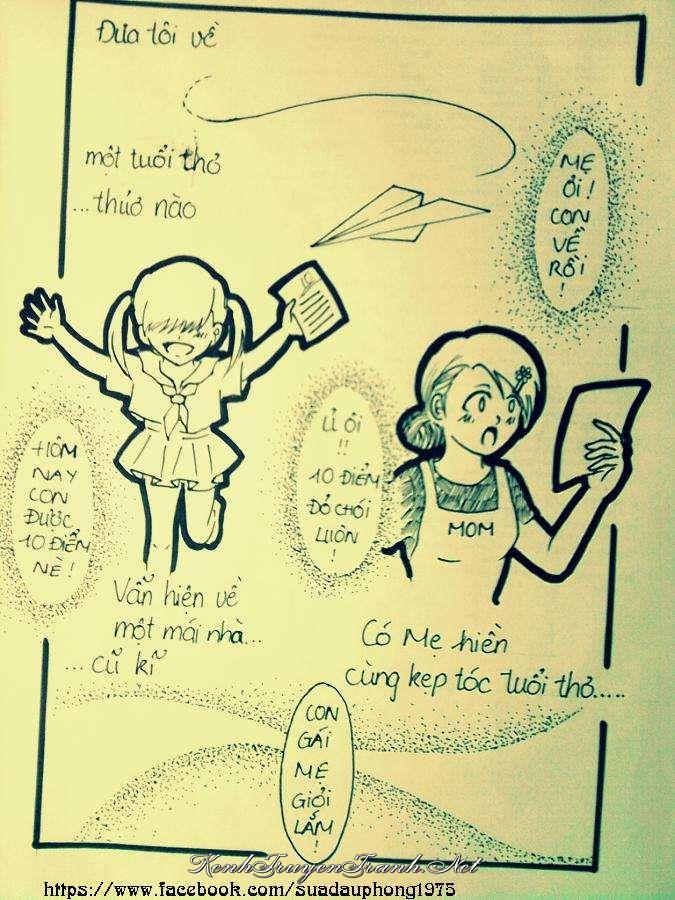 Đưa tôi về
một tuổi thơ
...thuở nào
MẸ
ƠI!
CON
VỀ
RỒI
!
10
HÔM
NAY
CON
ĐƯỢC
10 ĐIỂM
NÈ!
LỈ ÔI
!!
10 ĐIỂM
ĐỎ CHÓI
LUÔN
!
MOM
Vẫn hiện về
một mái nhà...
...cũ kĩ
Có Mẹ hiền
cùng kẹp tóc tuổi thơ.....
CON
GÁI
MẸ
GIỎI
LẮM
!
KenhTruyenTranh.Net
https://www.facebook.com/suadauphong1975